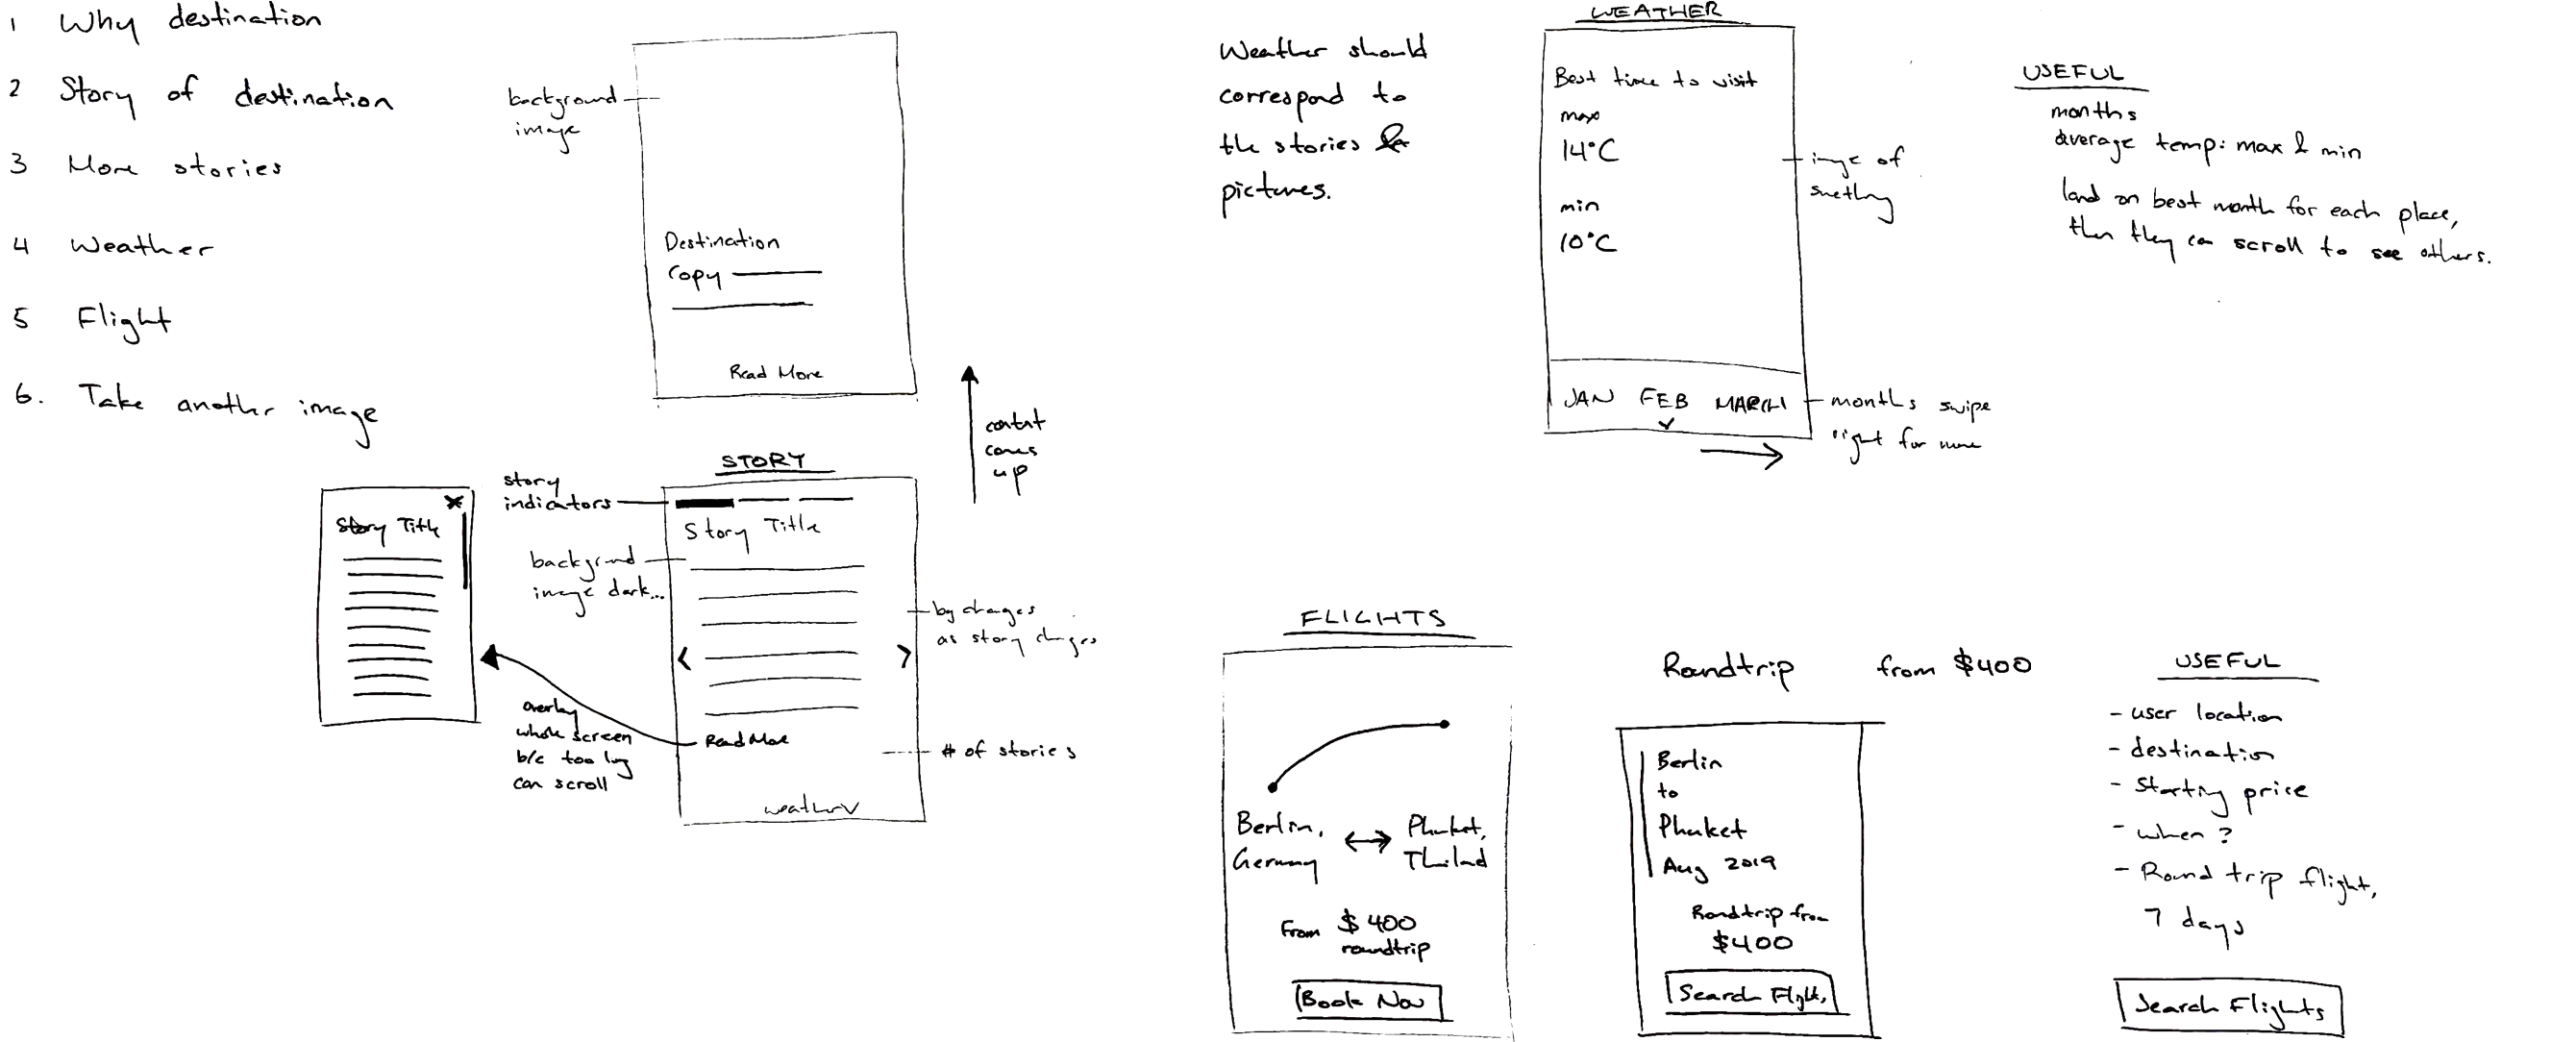 1 Why destination
2 Story of destination
3 More stories
4 Weather
5 Flight
6. Take another image
background
image
Destination
Copy
Read More
content
comes
up
STORY
story
indicators
Story Title
background
image dark...
by changes
as story changes
Read More
# of stories
weather
X
Story Title
overlay
whole screen
b/c too long
can scroll
Weather should
correspond to
the stories &
pictures.
WEATHER
Best time to visit
max
14°C
min
10°C
image of
something
JAN FEB MARCH
months swipe
right for more
USEFUL
months
average temp: max & min
land on best month for each place,
then they can scroll to see others.
FLIGHTS
Berlin,
Germany
Phuket,
Thailand
From $400
roundtrip
Book Now
Roundtrip from $400
Berlin
to
Phuket
Aug 2019
Roundtrip from
$400
Search Flights
USEFUL
- user location
- destination
- Starting price
- when ?
- Round trip flight,
7 days
Search Flights